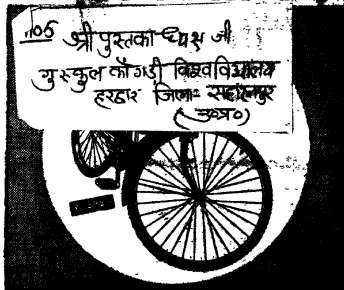 श्री पुस्तकाध्यक्ष जी
गुरुकुल काँगडी विश्वविद्यालय
हरद्वार जिला- सहारनपुर
(उ०प्र०)